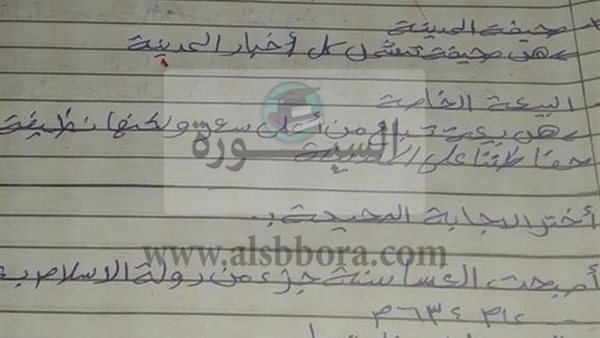 صحيفة المدينة
هى صحيفة تشمل كل أخبار المدينة
البيعة الخاصة
هى بيعة تباع من أعلى سعر ولكنها نظيفة
حفاظتنا على
السبورة
أختر الاجابة الصحيحة :-
www.alsbbora.com
أصبحت الغساسنة جزء من دولة الاسلام
٦٣٤ م